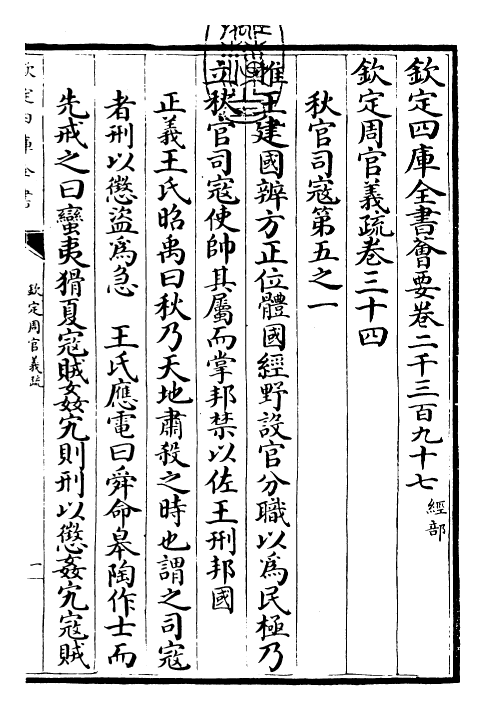 欽定四庫全書薈要卷二千三百九十七 經部
欽定周官義疏卷三十四
秋官司寇第五之一
惟王建國辨方正位體國經野設官分職以爲民極乃
立秋官司寇使帥其屬而掌邦禁以佐王刑邦國
正義王氏昭禹曰秋乃天地肅殺之時也謂之司寇
者刑以懲盜爲急 王氏應電曰舜命皋陶作士而
先戒之曰蠻夷猾夏寇賊姦宄則刑以懲姦宄寇賊
欽定四庫全書
欽定周官義疏
一